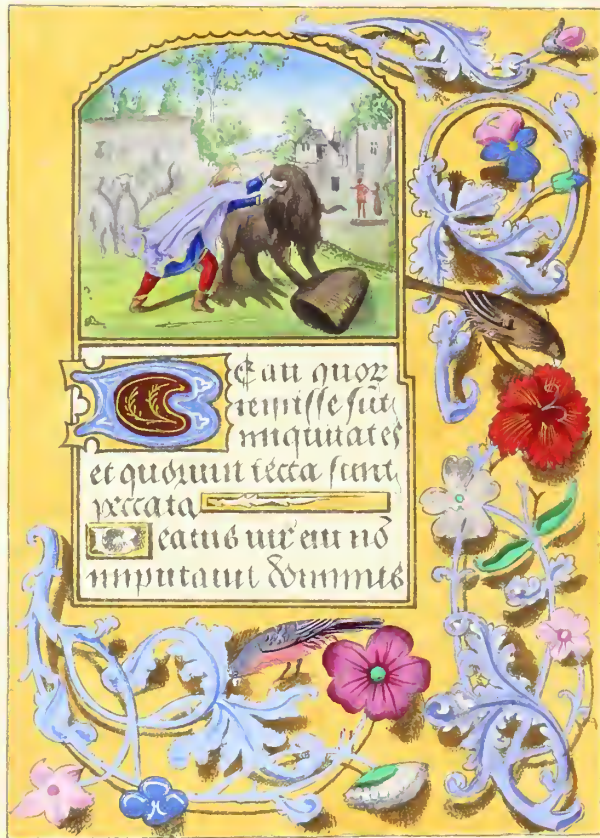 Eati quor
remisse sūt
iniquitates
et quorum tecta sunt
peccata
Beatus uir cui nō
imputauit dominus